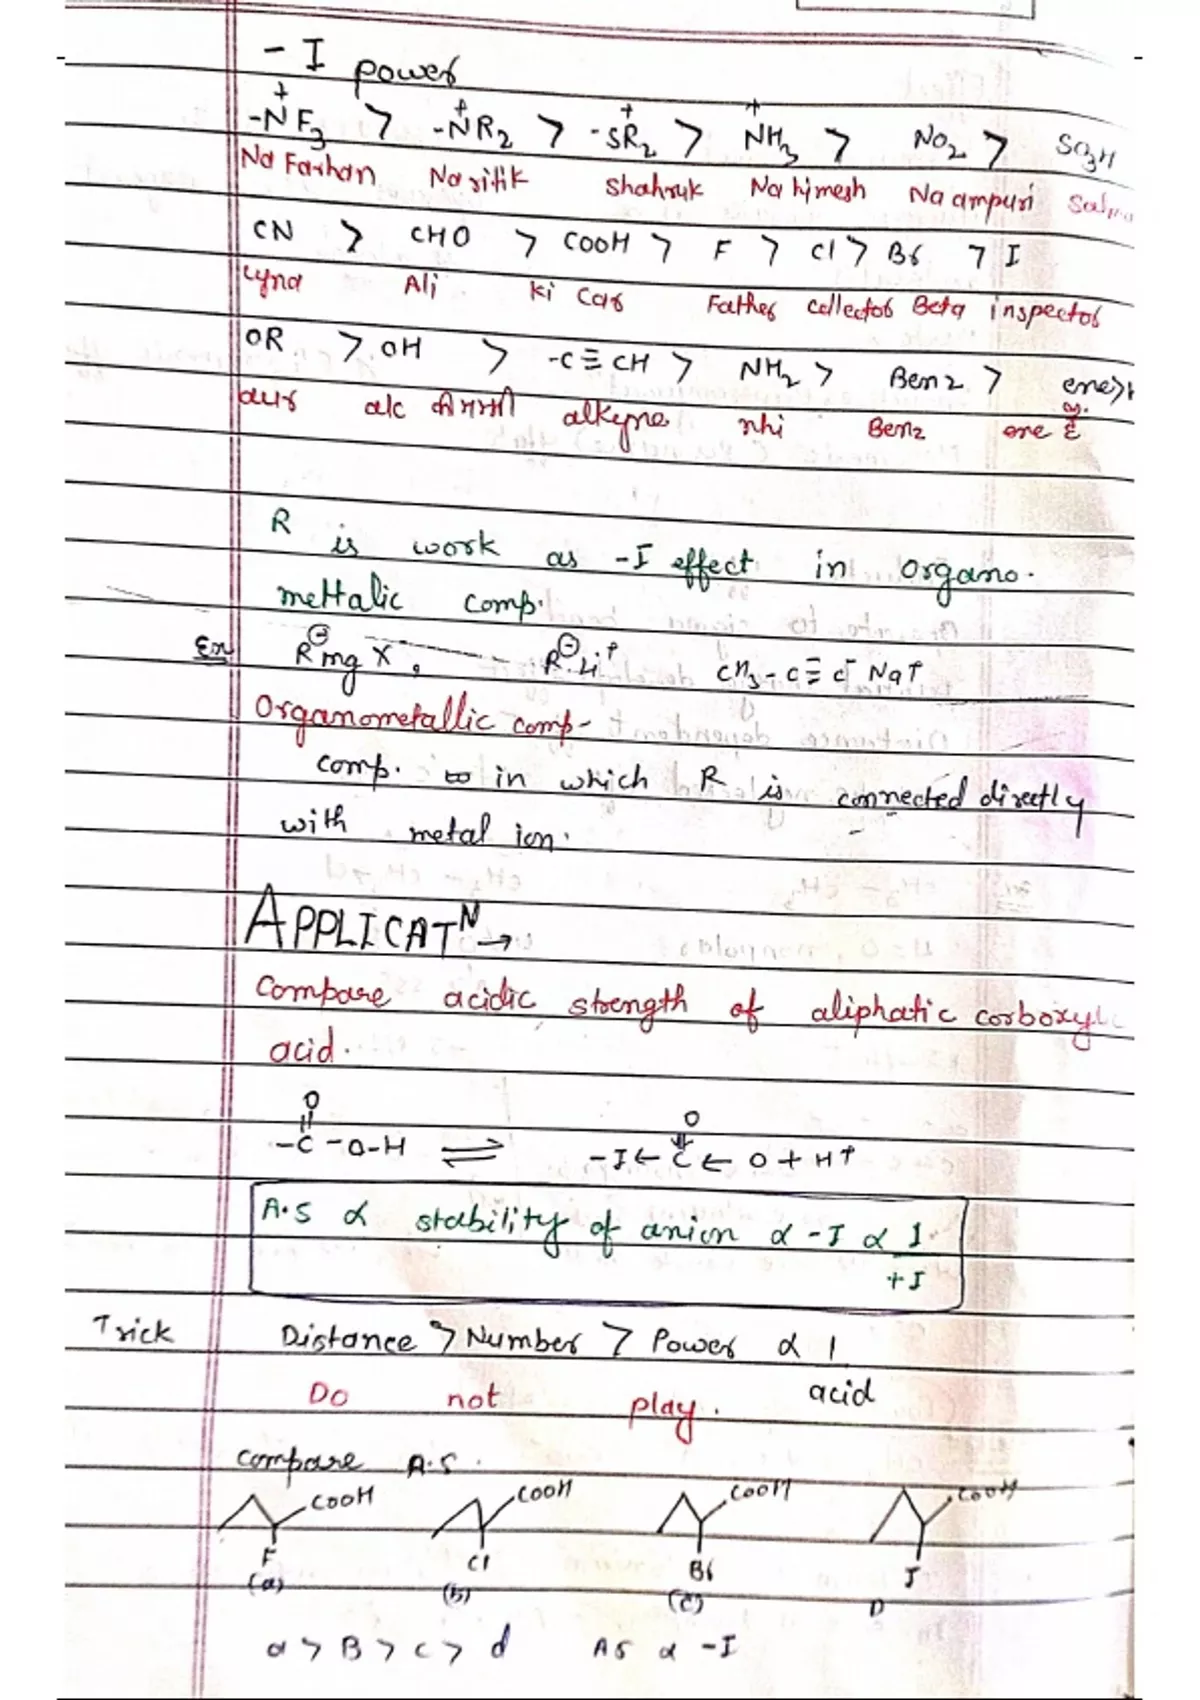 - I power
-N⁺F₃ > -N⁺R₂ > -S⁺R₂ > N⁺H₃ > NO₂ > SO₃H
Na Farhan Na ritik Shahruk Na himesh Na ampuri
CN > CHO > COOH > F > Cl > Br > I
Lyna Ali ki Car Father collector Beta inspector
OR > OH > -C≡CH > NH₂ > Benz > ene >
aur alc alkyne nhi Benz ene
R is work as -I effect in organo.
mettalic comp.
Ex R⊖mg X, R⊖Li⁺ CH₃-C≡C⁻ Na⁺
Organometallic comp-
comp. in which R is connected directly
with metal ion.
APPLICATᴺ→
Compare acidic strength of aliphatic carboxylic
acid.
O O
-C-O-H ⇌ -I←C←O + H⁺
A.S ∝ stability of anion ∝ -I ∝ 1
+I
Trick Distance > Number > Power ∝ 1
acid
Do not play.
compare A.S.
COOH COOH COOH COOH
F Cl Br I
(a) (b) (c) D
a > B > c > d AS ∝ -I